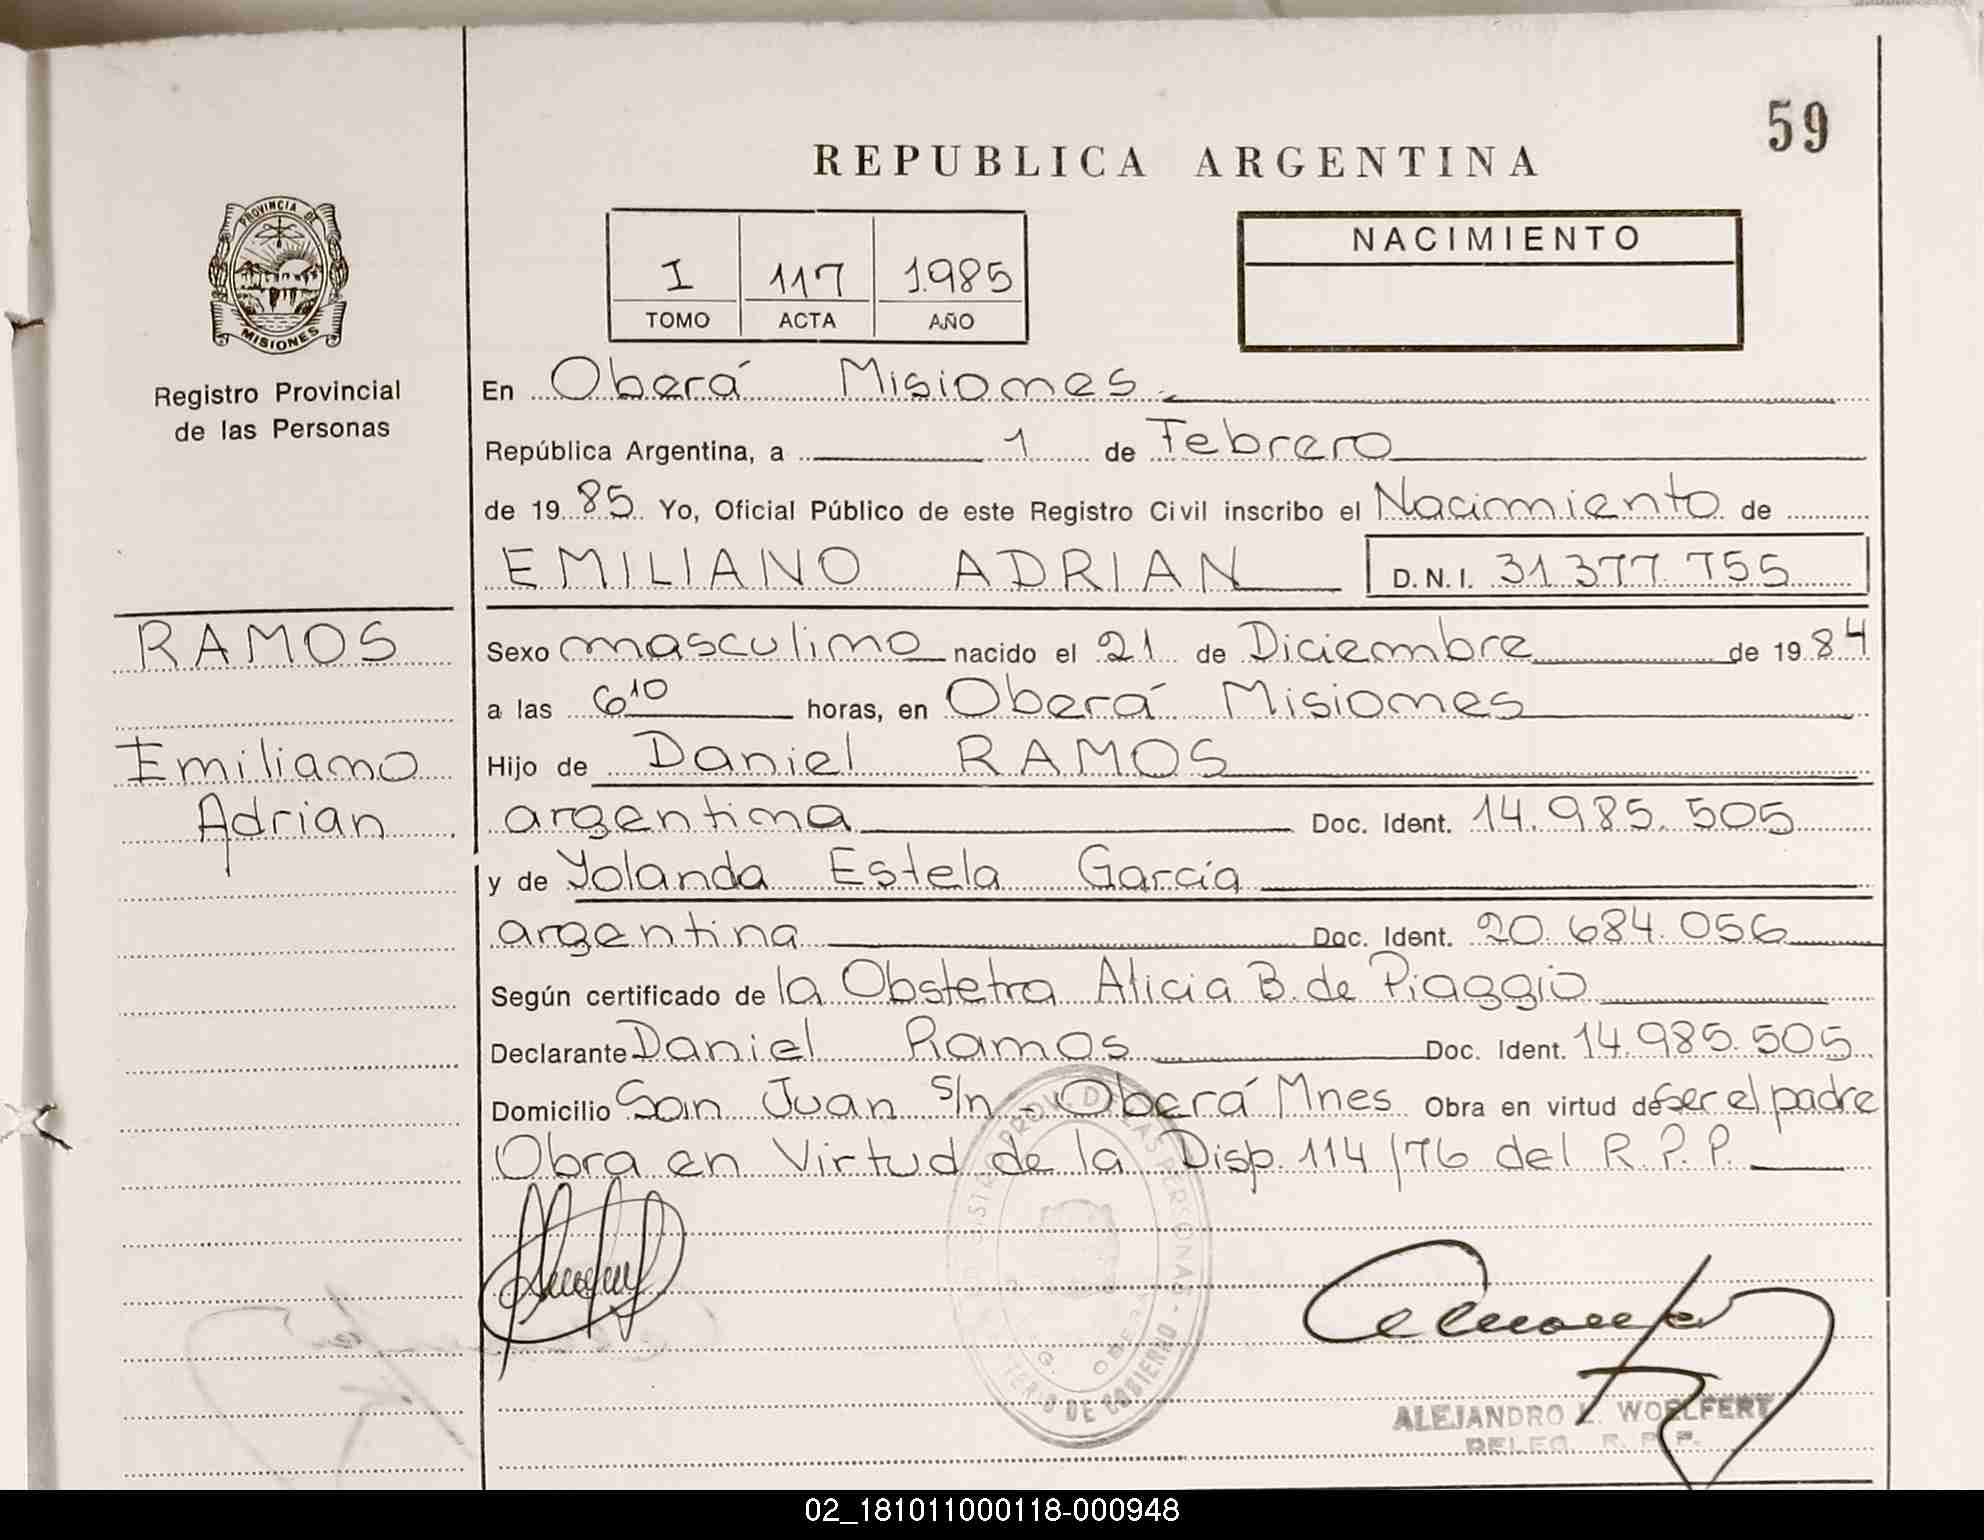 59
REPUBLICA ARGENTINA
PROVINCIA DE
MISIONES
Registro Provincial
de las Personas
I 117 1.985
TOMO ACTA AÑO
NACIMIENTO
En Oberá Misiones
República Argentina, a 1 de Febrero
de 19 85 Yo, Oficial Público de este Registro Civil inscribo el Nacimiento de
EMILIANO ADRIAN D.N.I. 31.377.755
RAMOS
Emiliano
Adrian
Sexo masculino nacido el 21 de Diciembre de 19 84
a las 6 10 horas, en Oberá Misiones
Hijo de Daniel RAMOS
argentina Doc. Ident. 14.985.505
y de Yolanda Estela García
argentina Doc. Ident. 20.684.056
Según certificado de la Obstetra Alicia B. de Piaggio
Declarante Daniel Ramos Doc. Ident. 14.985.505
Domicilio San Juan s/n - Oberá Mnes Obra en virtud de ser el padre
Obra en Virtud de la Disp. 114/76 del R.P.P.
ALEJANDRO L. WOELFERT
DELEG. R. P. P.
02_181011000118-000948